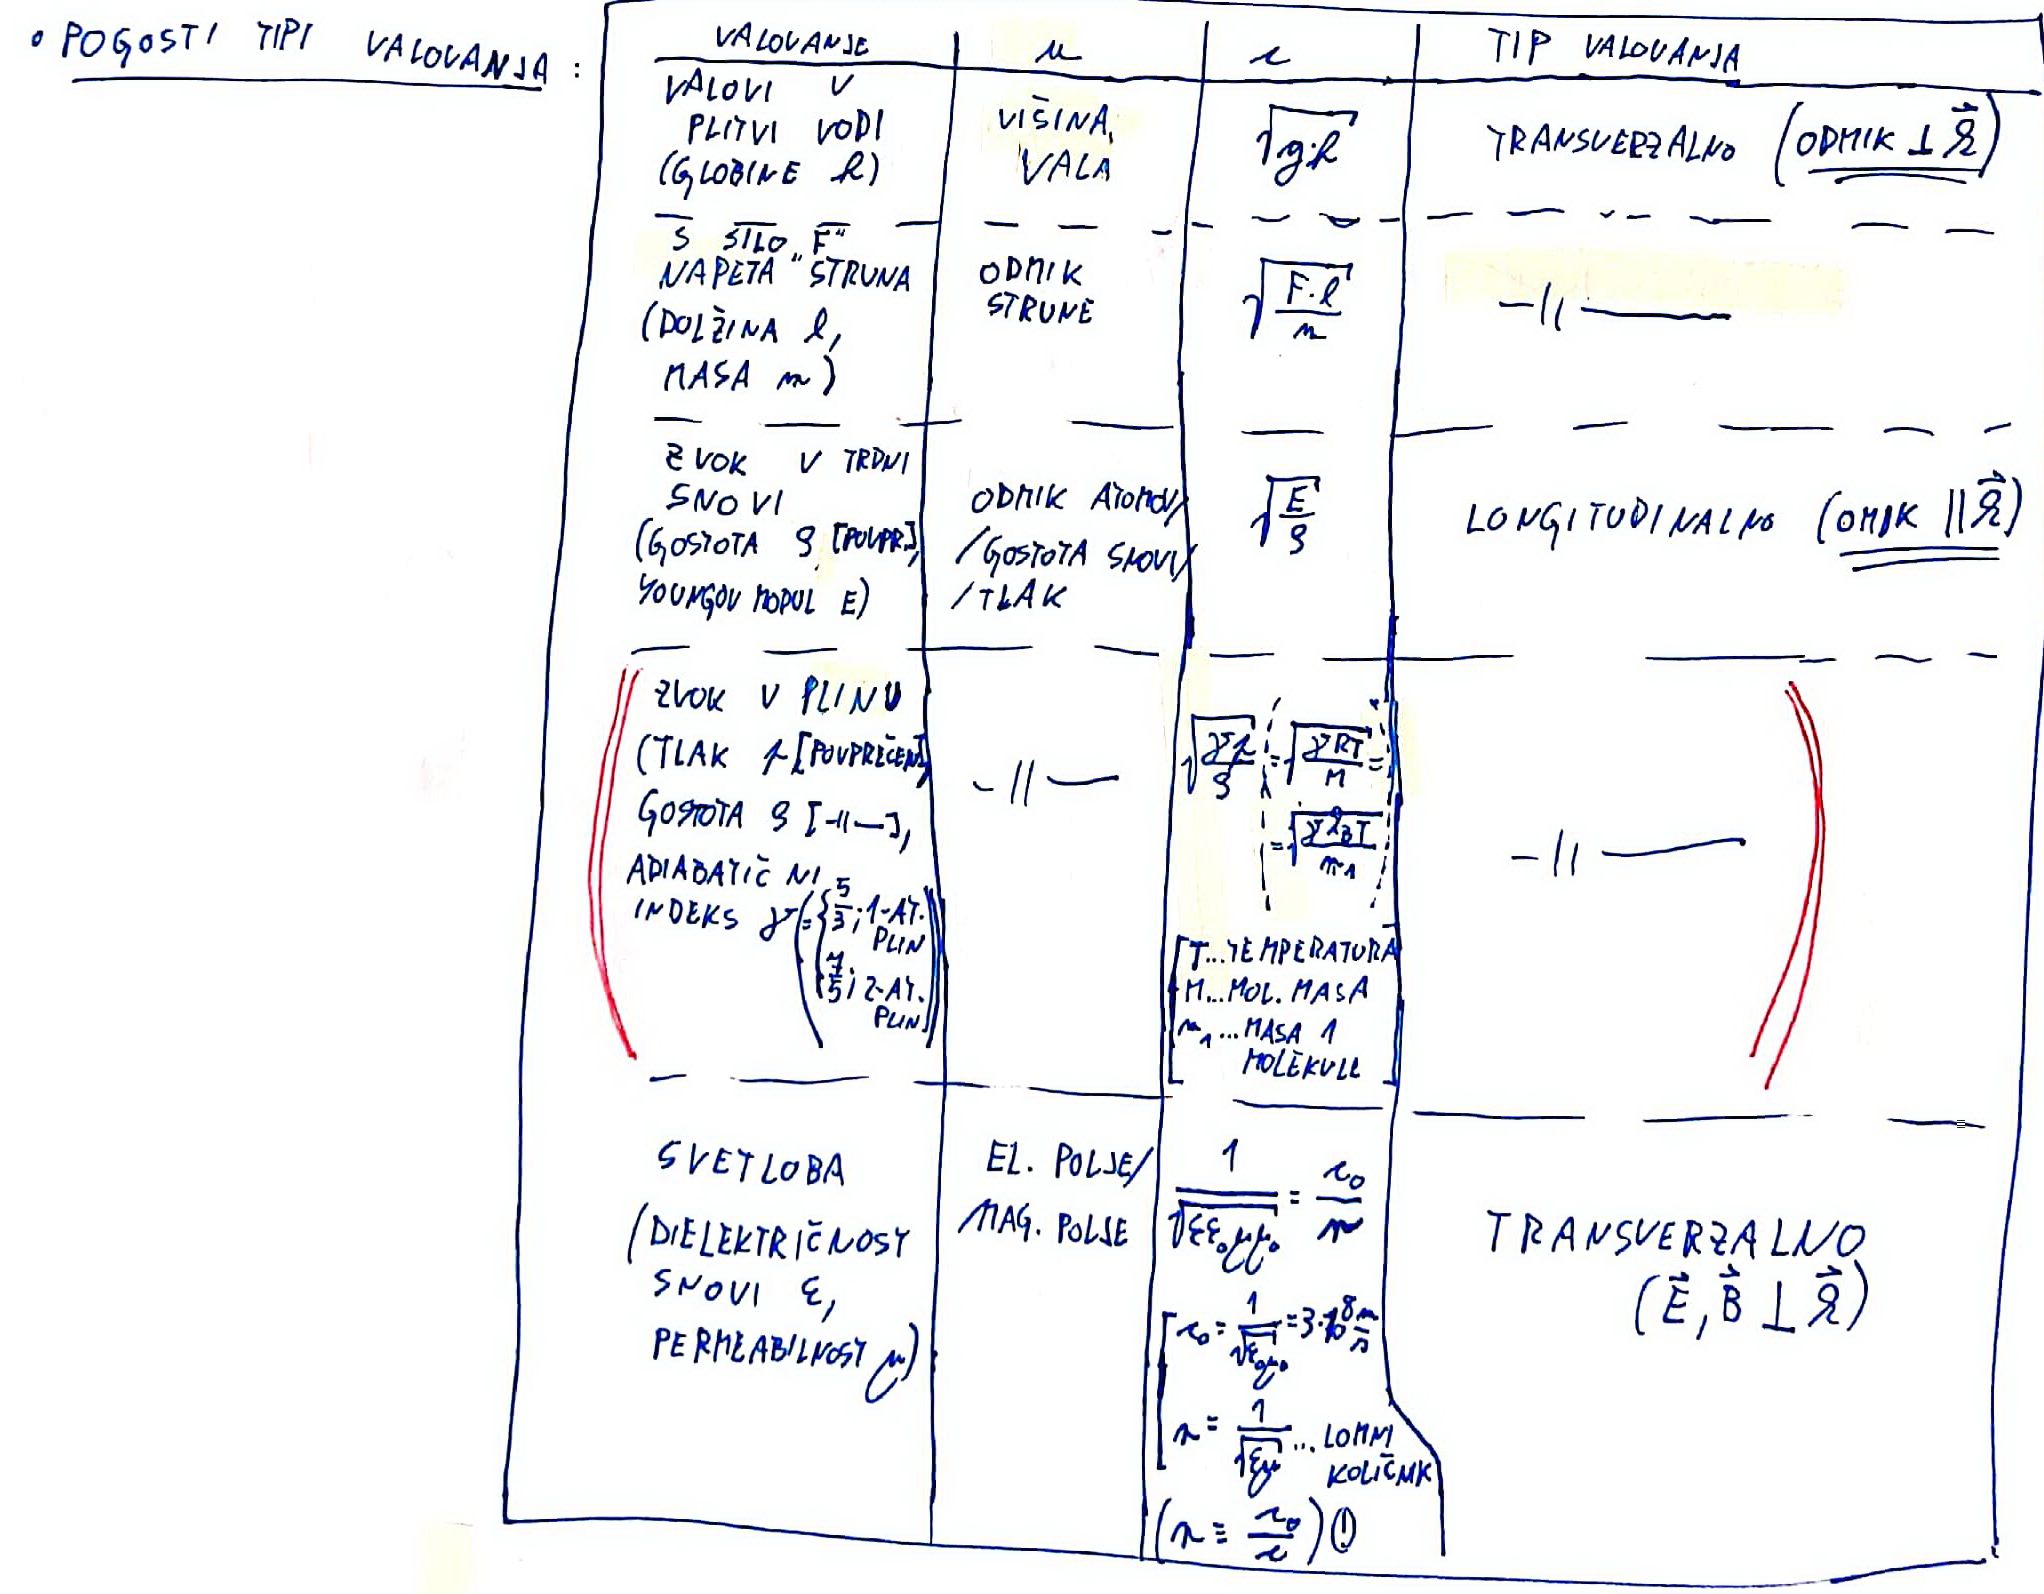 • POGOSTI TIPI VALOVANJA :
VALOVANJE u c TIP VALOVANJA
VALOVI V
PLITVI VODI
(GLOBINE h)
VIŠINA
VALA
√(g·h)
TRANSVERZALNO (ODMIK ⊥ k⃗)
S SILO „F"
NAPETA STRUNA
(DOLŽINA l,
MASA m)
ODMIK
STRUNE
√(F·l/m)
-||-
ZVOK V TRDNI
SNOVI
(GOSTOTA ρ [POVPR],
YOUNGOV MODUL E)
ODMIK ATOMOV/
/GOSTOTA SNOVI/
/TLAK
√(E/ρ)
LONGITUDINALNO (OMIK || k⃗)
ZVOK V PLINU
(TLAK p [POVPREČEN],
GOSTOTA ρ [-||-],
ADIABATIČNI
INDEKS γ (= { 5/3; 1-AT.
PLIN
7/5; 2-AT.
PLIN))
-||-
√(γp/ρ) = √(γRT/M) =
= √(γk_BT/m₁)
[T...TEMPERATURA
M...MOL. MASA
m₁...MASA 1
MOLEKULE]
-||-
SVETLOBA
(DIELEKTRIČNOST
SNOVI ε,
PERMEABILNOST μ)
EL. POLJE/
MAG. POLJE
1/√(εε₀μμ₀) = c₀/n
[c₀ = 1/√(ε₀μ₀) = 3·10⁸ m/s
n = 1/√(εμ) ... LOMNI
KOLIČNIK
(n ≡ c₀/c) !
TRANSVERZALNO
(E⃗, B⃗ ⊥ k⃗)